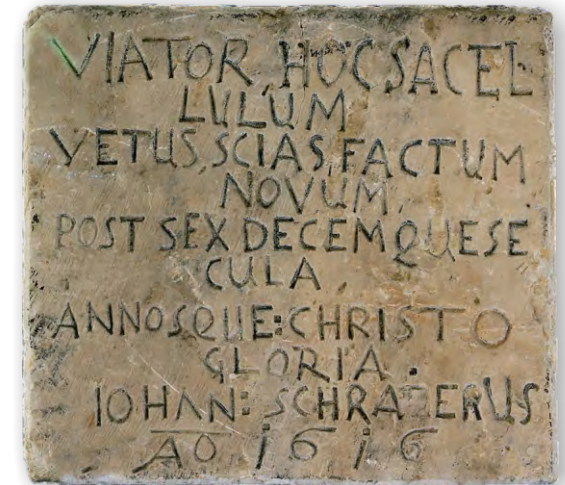 VIATOR, HOC SACEL
LULUM
VETUS, SCIAS, FACTUM
NOVUM,
POST SEX DECEMQUE SE
CULA
ANNOSQUE: CHRISTO
GLORIA.
IOHAN: SCHRADERUS
AO 1616